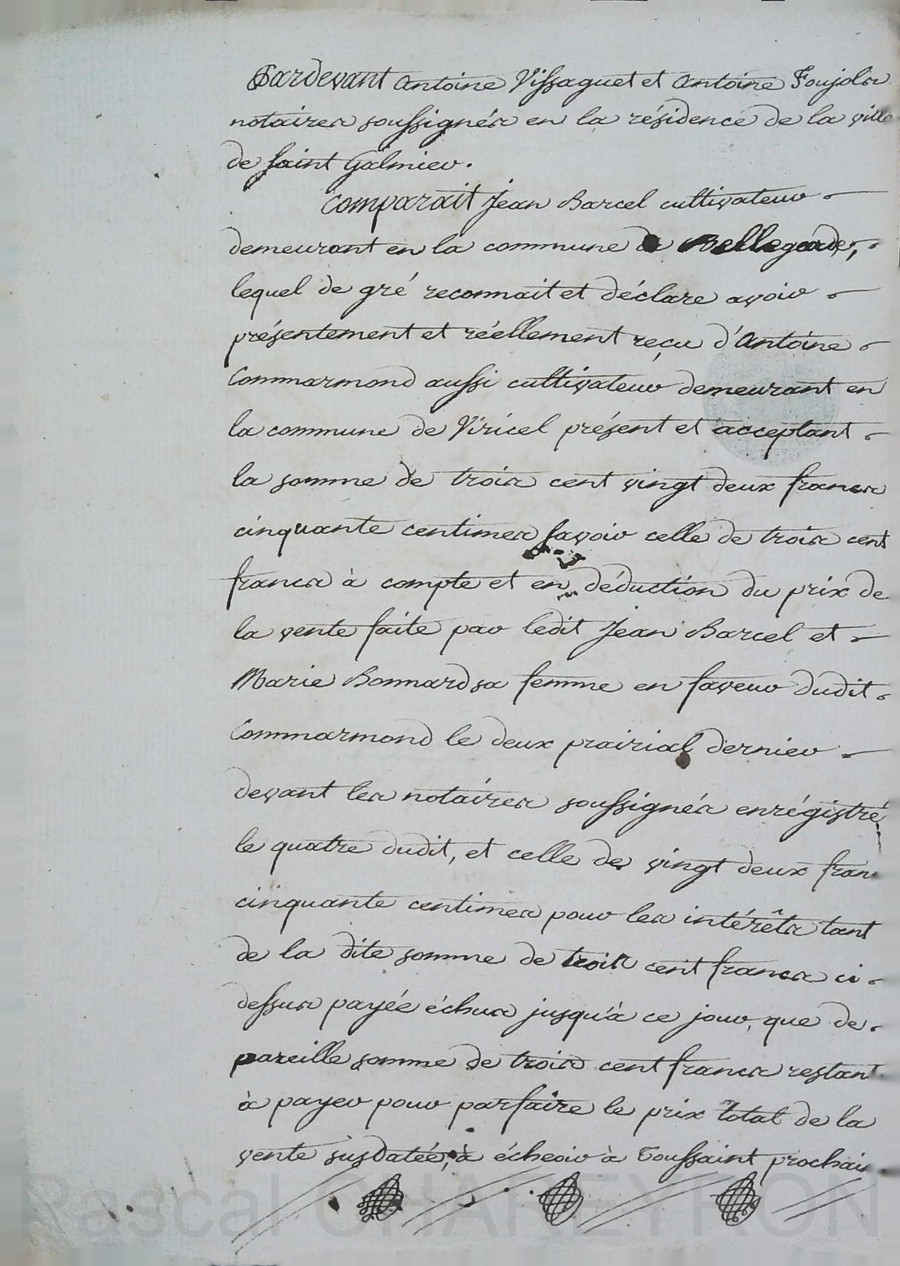 Pardevant Antoine Vissaguet et Antoine Foujols
notaires soussignés en la résidence de la ville
de Saint Galmier.
Comparait Jean Barcel cultivateur
demeurant en la commune de Bellegarde,
lequel de gré reconnait et déclare avoir
présentement et réellement reçu d'Antoine
Commarmond aussi cultivateur demeurant en
la commune de Viricel présent et acceptant
la somme de trois cent vingt deux francs
cinquante centimes savoir celle de trois cent
francs à compte et en déduction du prix de
la vente faite par ledit Jean Barcel et
Marie Bonnard sa femme en faveur dudit
Commarmond le deux prairial dernier
devant les notaires soussignés enrégistré
le quatre dudit, et celle de vingt deux fran
cinquante centimes pour les intérêts tant
de la dite somme de trois cent francs ci
dessus payée échus jusqu'à ce jour, que de
pareille somme de trois cent francs restant
à payer pour parfaire le prix total de la
vente susdatée, à écheoir à Toussaint prochain
Pascal CHAREYRON